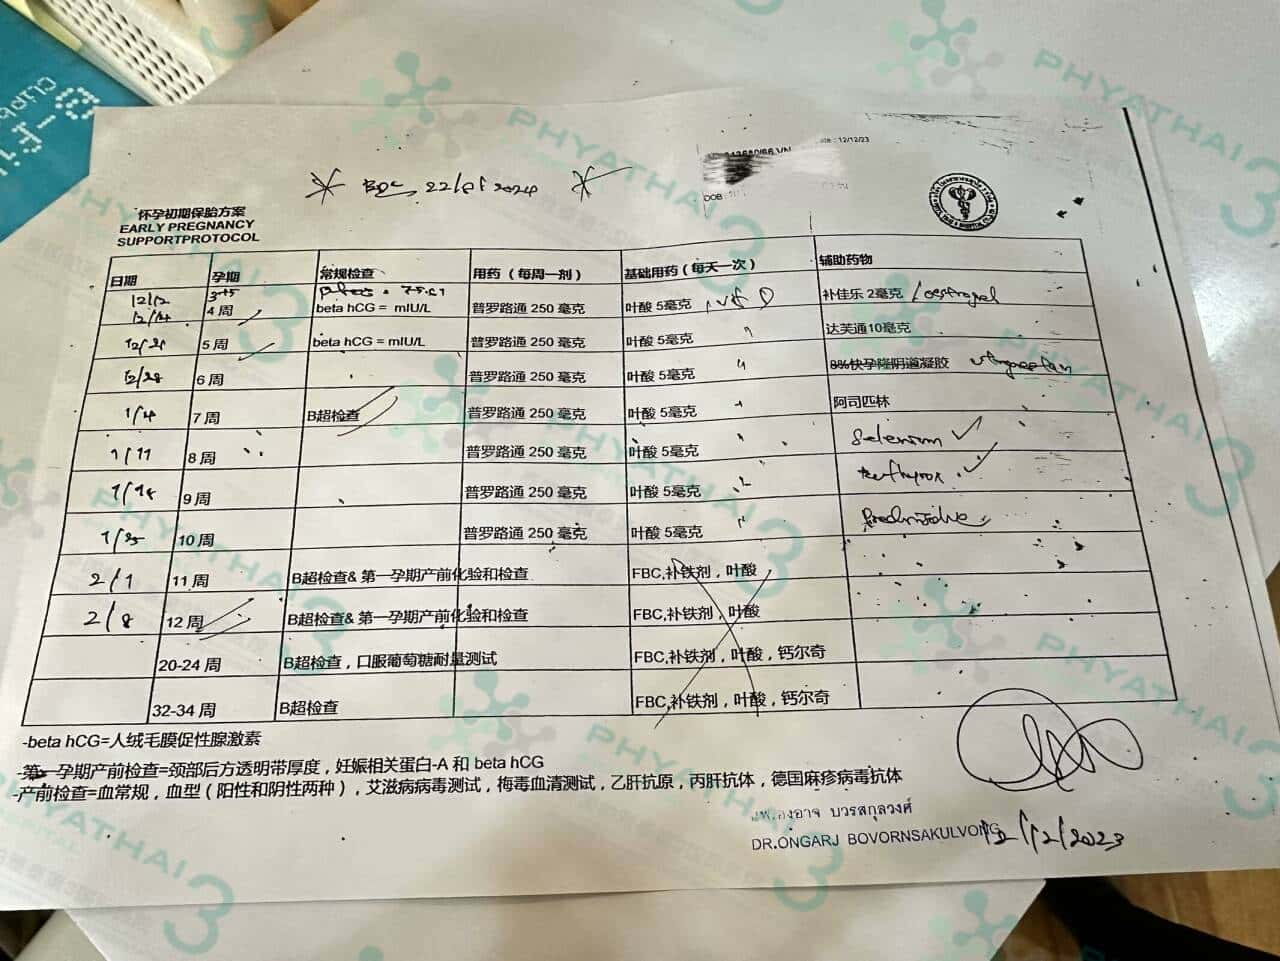 : 12/12/23
DOB :
22/01/2024
怀孕初期保胎方案
EARLY PREGNANCY
SUPPORTPROTOCOL
日期 孕期 常规检查 用药（每周一剂） 基础用药（每天一次） 辅助药物
12/12 3+5
12/14 4 周 beta hCG = mIU/L 普罗路通 250 毫克 叶酸 5毫克 补佳乐 2毫克
12/21 5 周 beta hCG = mIU/L 普罗路通 250 毫克 叶酸 5毫克 〃 达芙通10毫克
12/28 6 周 普罗路通 250 毫克 叶酸 5毫克 〃 8%快孕隆阴道凝胶
1/4 7 周 B超检查 普罗路通 250 毫克 叶酸 5毫克 阿司匹林
1/11 8 周 普罗路通 250 毫克 叶酸 5毫克 Selenium ✓
1/18 9 周 普罗路通 250 毫克 叶酸 5毫克
1/25 10 周 普罗路通 250 毫克 叶酸 5毫克
2/1 11 周 B超检查& 第一孕期产前化验和检查 FBC,补铁剂，叶酸
2/8 12 周 B超检查& 第一孕期产前化验和检查 FBC,补铁剂，叶酸
20-24 周 B超检查，口服葡萄糖耐量测试 FBC,补铁剂，叶酸，钙尔奇
32-34 周 B超检查 FBC,补铁剂，叶酸，钙尔奇
-beta hCG=人绒毛膜促性腺激素
-第一孕期产前检查=颈部后方透明带厚度，妊娠相关蛋白-A 和 beta hCG
-产前检查=血常规，血型（阳性和阴性两种），艾滋病病毒测试，梅毒血清测试，乙肝抗原，丙肝抗体，德国麻疹病毒抗体
นพ.องอาจ บวรสกุลวงศ์
DR.ONGARJ BOVORNSAKULVONG 12/12/2023
PHYATHAI 3